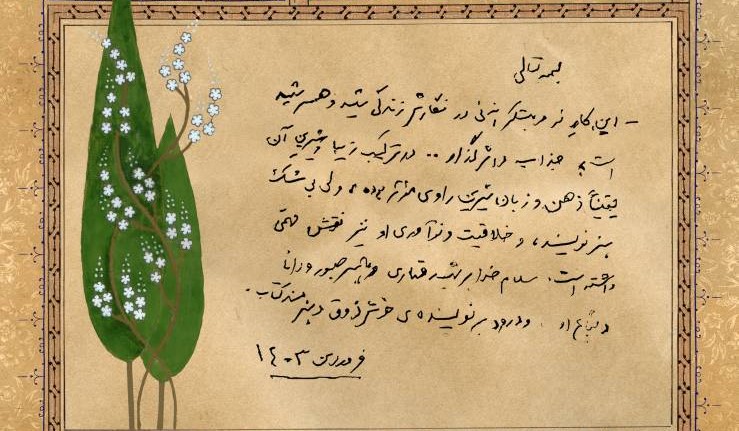 بسمه تعالی
- این کارِ نو و مبتکرانه‌ئی در نگارش زندگی شهید و همسر شهید
است، جذاب و اثرگذار .. در ترکیب زیبا و شیرین آن
یقیناً ذهن و زبان شیرین راوی مؤثر بوده، ولی بی شک
هنر نویسنده، و خلاقیت و نوآوری او نیز نقش مهمّی
داشته است. سلام خدا بر شهید و همسر صبور و دانا
و او و درود بر نویسنده‌ی خوش‌ذوق و هنرمند کتاب.
فروردین ۱۴۰۳